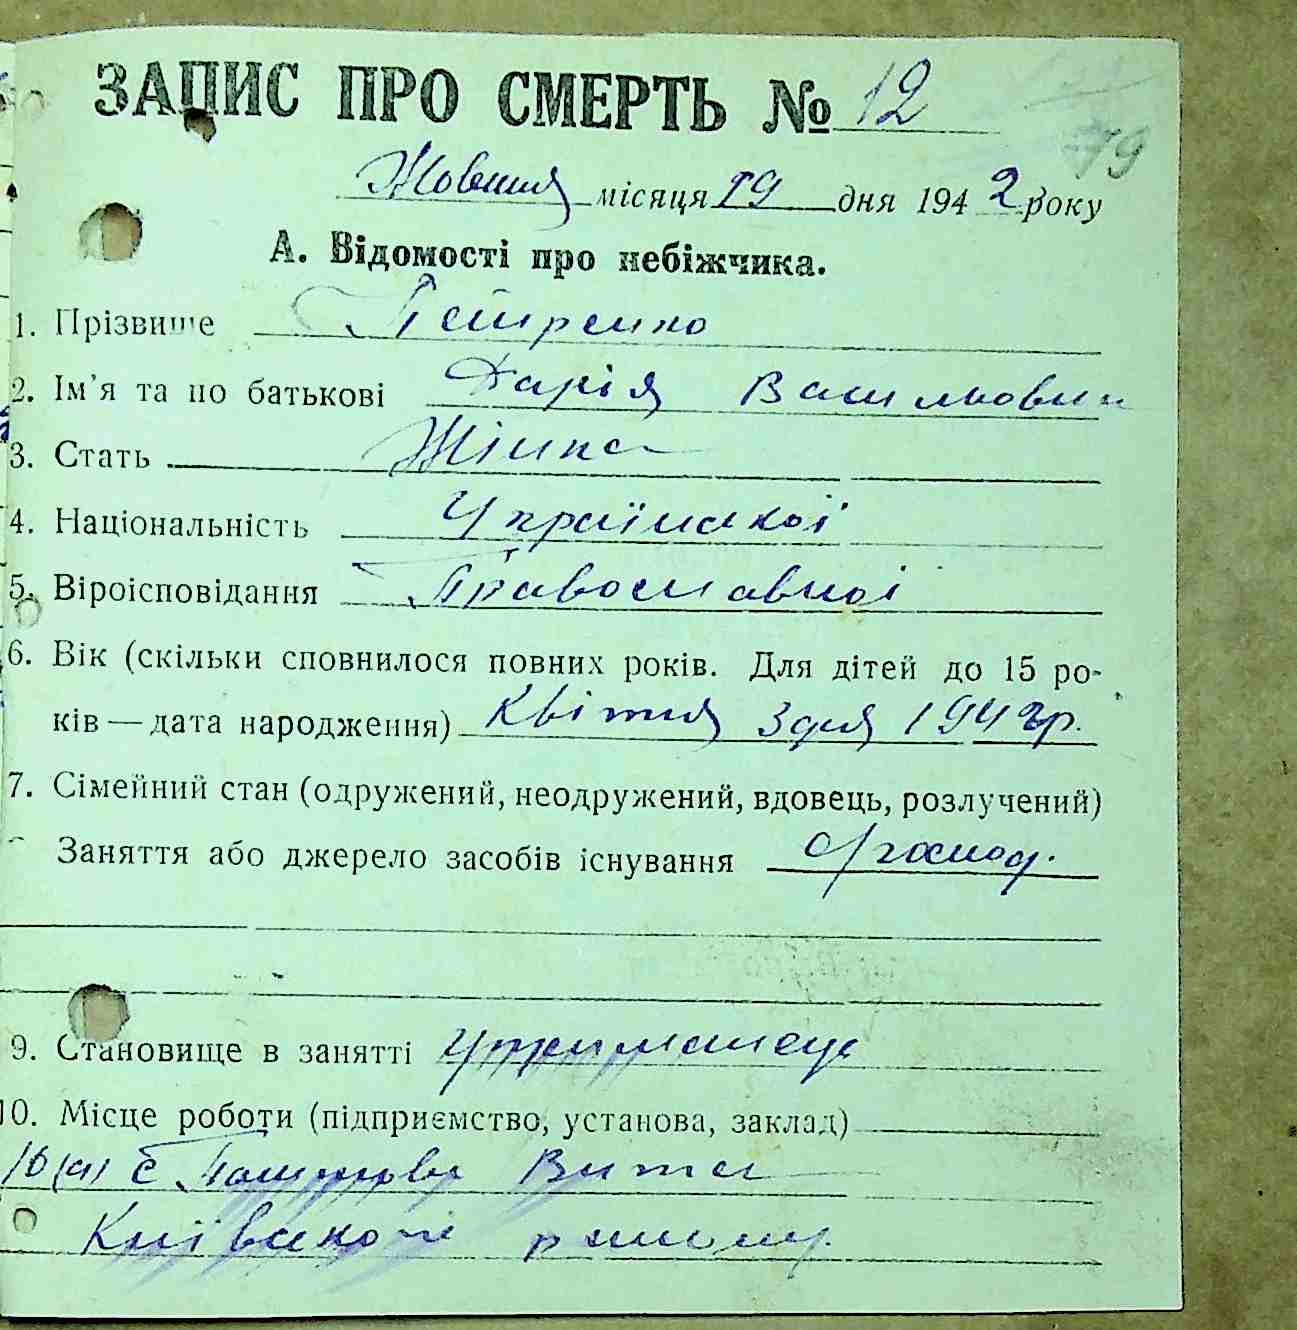 ЗАПИС ПРО СМЕРТЬ № 12
79
Жовтня місяця 19 дня 1942 року
А. Відомості про небіжчика.
1. Прізвище Петренко
2. Ім'я та по батькові Дарія Васильовна
3. Стать Жінка
4. Національність Української
5. Віроісповідання Православної
6. Вік (скільки сповнилося повних років. Для дітей до 15 ро-
ків — дата народження) Квітня 3 дня 1942 р.
7. Сімейний стан (одружений, неодружений, вдовець, розлучений)
Заняття або джерело засобів існування с/господ.
9. Становище в занятті Утриманець
10. Місце роботи (підприємство, установа, заклад)
с Вита
Київського району